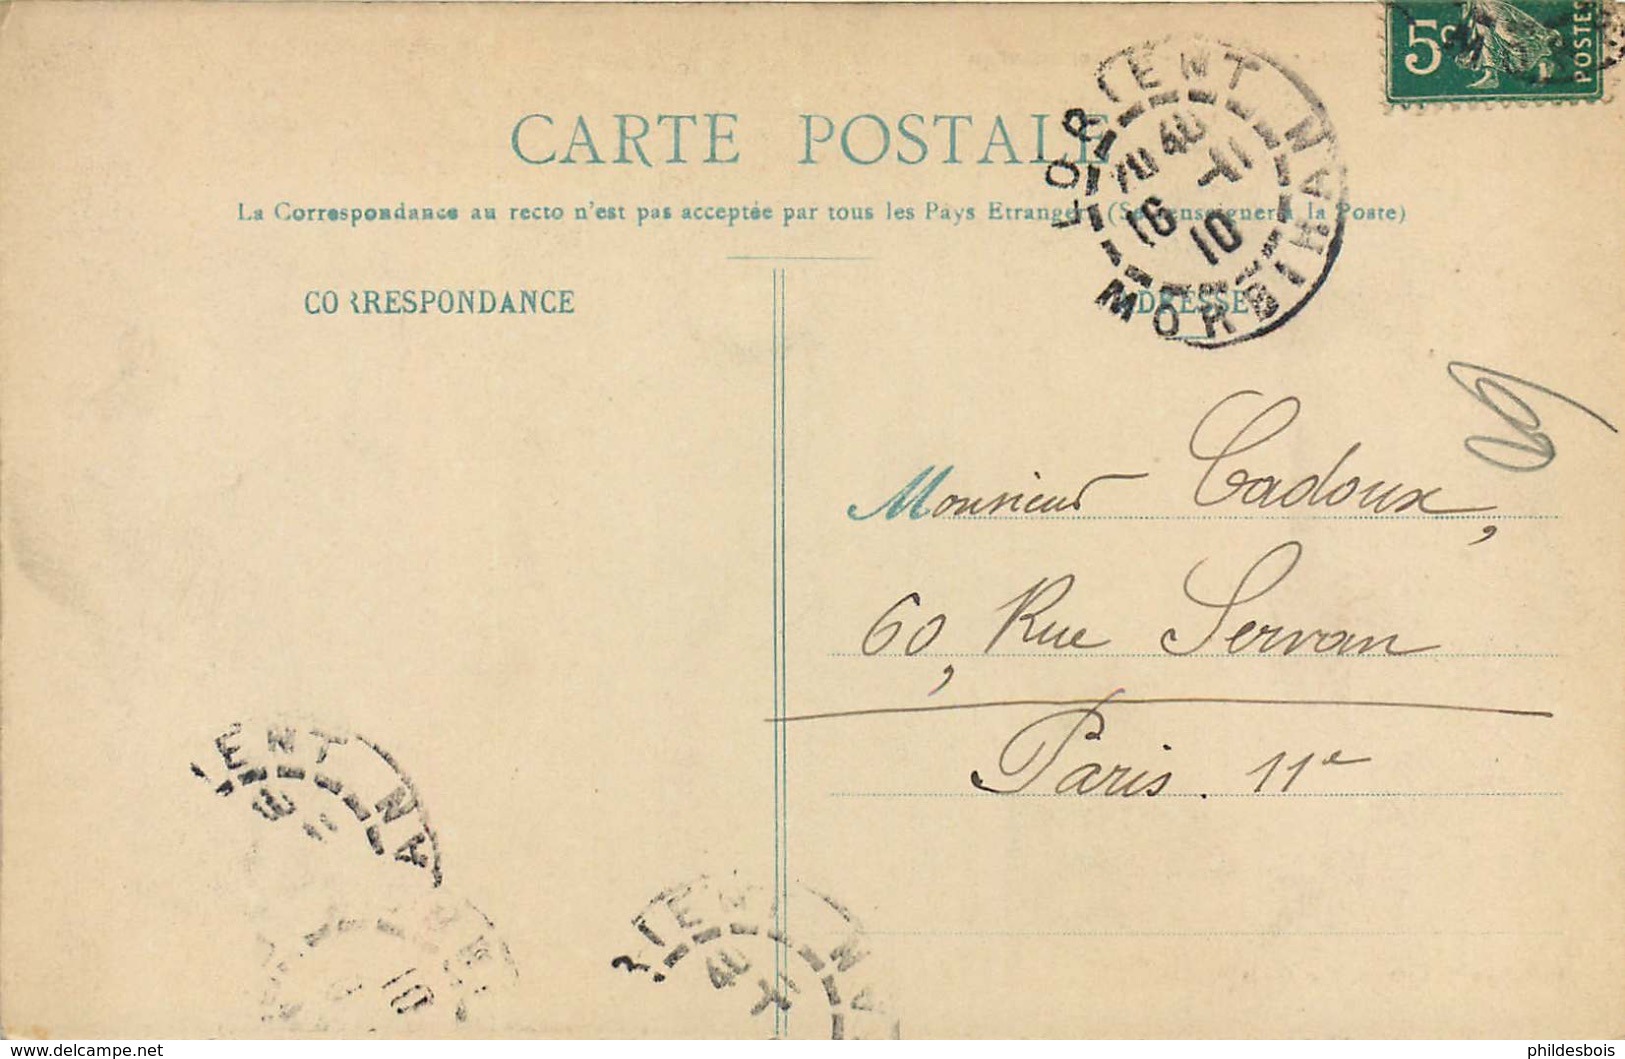 5c
POSTES
CARTE POSTALE
LORIENT NA
MORBIHAN
16 XI
10
La Correspondance au recto n'est pas acceptée par tous les Pays Etrangers (Se renseigner à la Poste)
CORRESPONDANCE
ADRESSE
Monsieur Cadoux,
60, Rue Servan
Paris. 11e
IENT NA
10
RIENT NA
delcampe.net
phildesbois